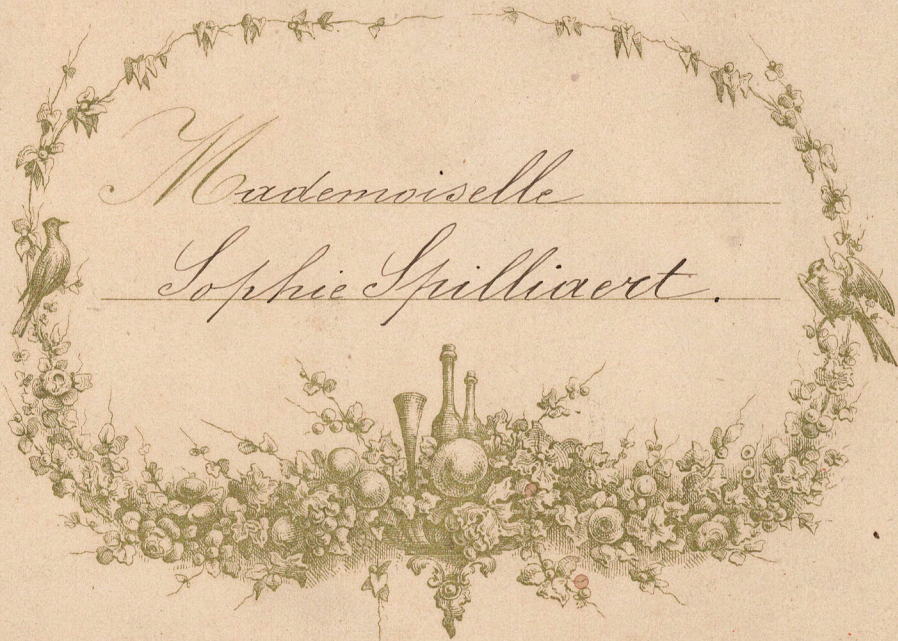 Mademoiselle
Sophie Spilliaert.